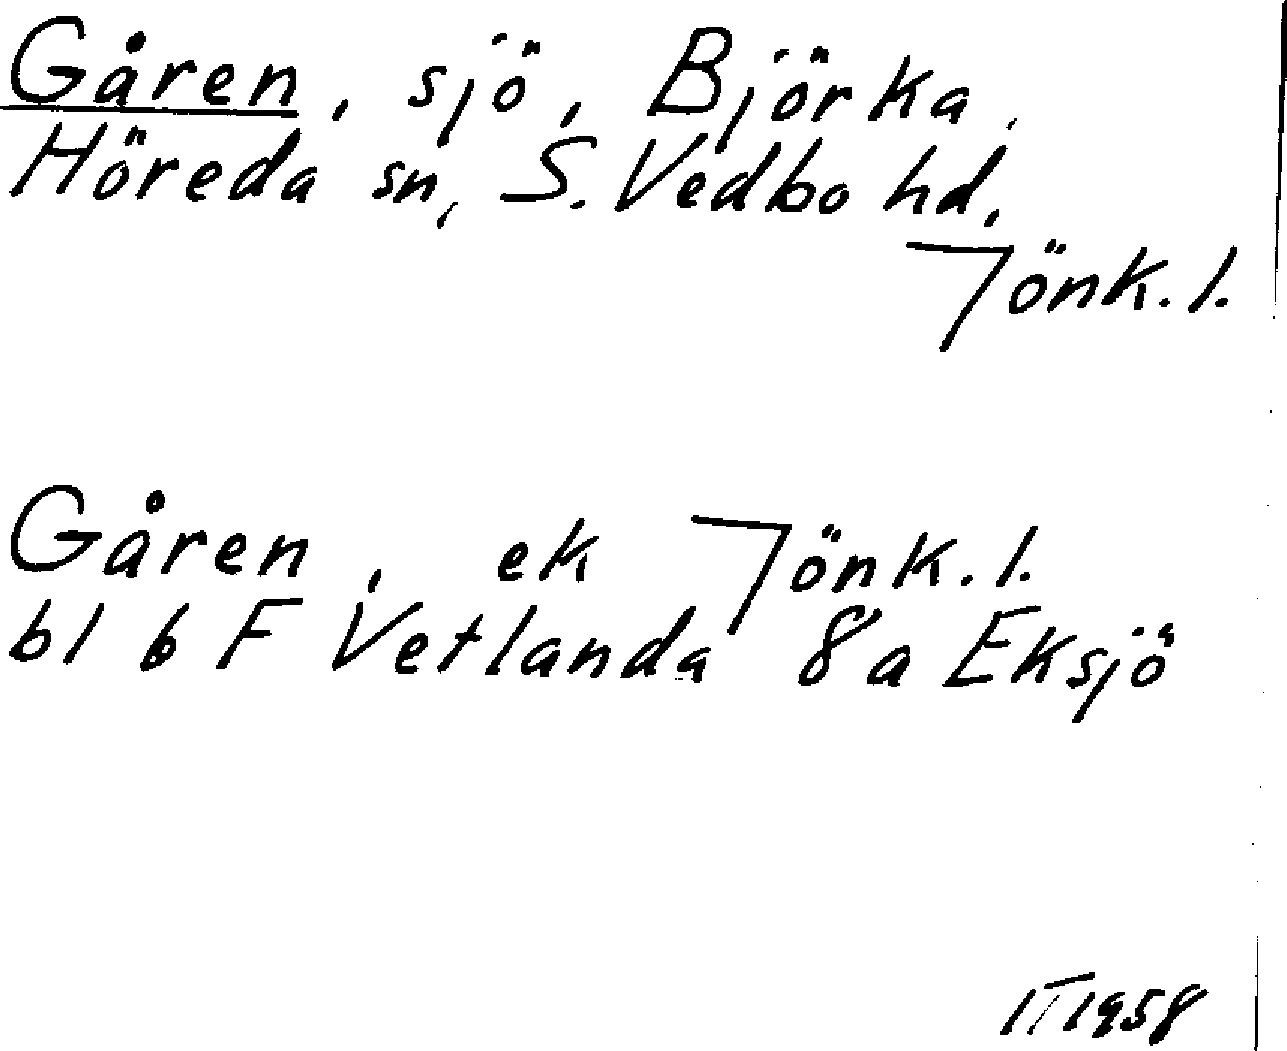 Gåren, sjö, Björka,
Höreda sn, S. Vedbo hd,
Jönk. l.
Gåren, ek Jönk. l.
bl 6 F Vetlanda 8a Eksjö
IT 1958